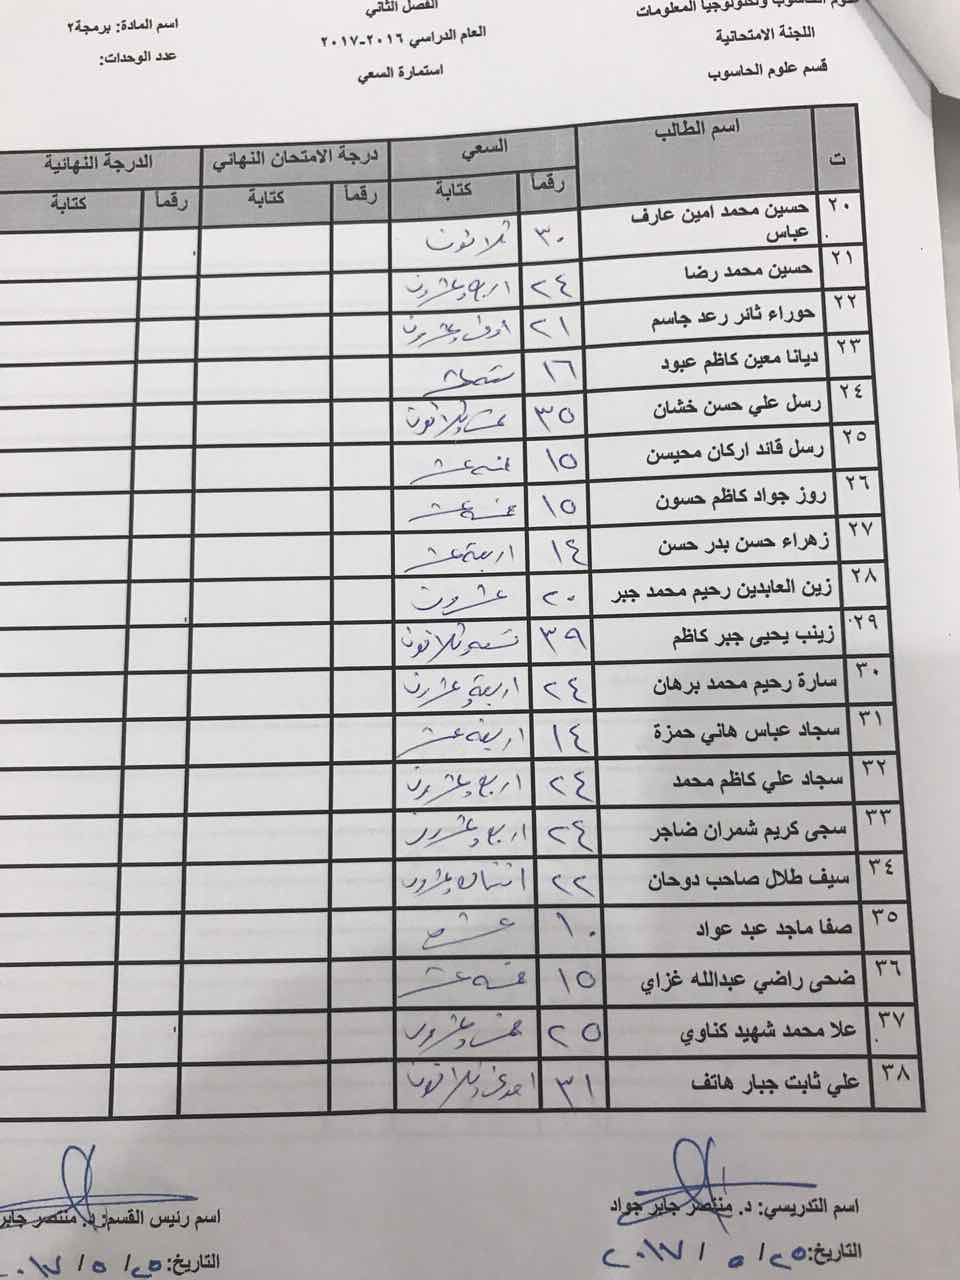 الحاسوب وتكنولوجيا المعلومات
اللجنة الامتحانية
قسم علوم الحاسوب
الفصل الثاني
العام الدراسي ٢٠١٦-٢٠١٧
استمارة السعي
اسم المادة: برمجة٢
عدد الوحدات:
ت اسم الطالب السعي درجة الامتحان النهائي الدرجة النهائية
رقماً كتابة رقماً كتابة رقماً كتابة
٢٠ حسين محمد امين عارف عباس ٣٠ ثلاثون
٢١ حسين محمد رضا ٢٤ اربع وعشرون
٢٢ حوراء ثائر رعد جاسم ٢١ وعشرون
٢٣ ديانا معين كاظم عبود ١٦ ستة عشر
٢٤ رسل علي حسن خشان ٣٥ خمس وثلاثون
٢٥ رسل قائد اركان محيسن ١٥ خمسة عشر
٢٦ روز جواد كاظم حسون ١٥ خمسة عشر
٢٧ زهراء حسن بدر حسن ١٤ اربعة عشر
٢٨ زين العابدين رحيم محمد جبر ٢٠ عشرون
٢٩ زينب يحيى جبر كاظم ٣٩ تسعة وثلاثون
٣٠ سارة رحيم محمد برهان ٢٤ اربعة وعشرون
٣١ سجاد عباس هاني حمزة ١٤ اربعة عشر
٣٢ سجاد علي كاظم محمد ٢٤ اربع وعشرون
٣٣ سجى كريم شمران ضاجر ٢٤ اربع وعشرون
٣٤ سيف طلال صاحب دوحان ٢٢ اثنان وعشرون
٣٥ صفا ماجد عبد عواد ١٠ عشرة
٣٦ ضحى راضي عبدالله غزاي ١٥ خمسة عشر
٣٧ علا محمد شهيد كناوي ٢٥ خمس وعشرون
٣٨ علي ثابت جبار هاتف ٣١ احدى وثلاثون
اسم التدريسي: د. منتصر جابر جواد
التاريخ: ٢٥/ ٥ / ٢٠١٧
اسم رئيس القسم: د. منتصر جابر
التاريخ: ٢٥/ ٥ / ٢٠١٧